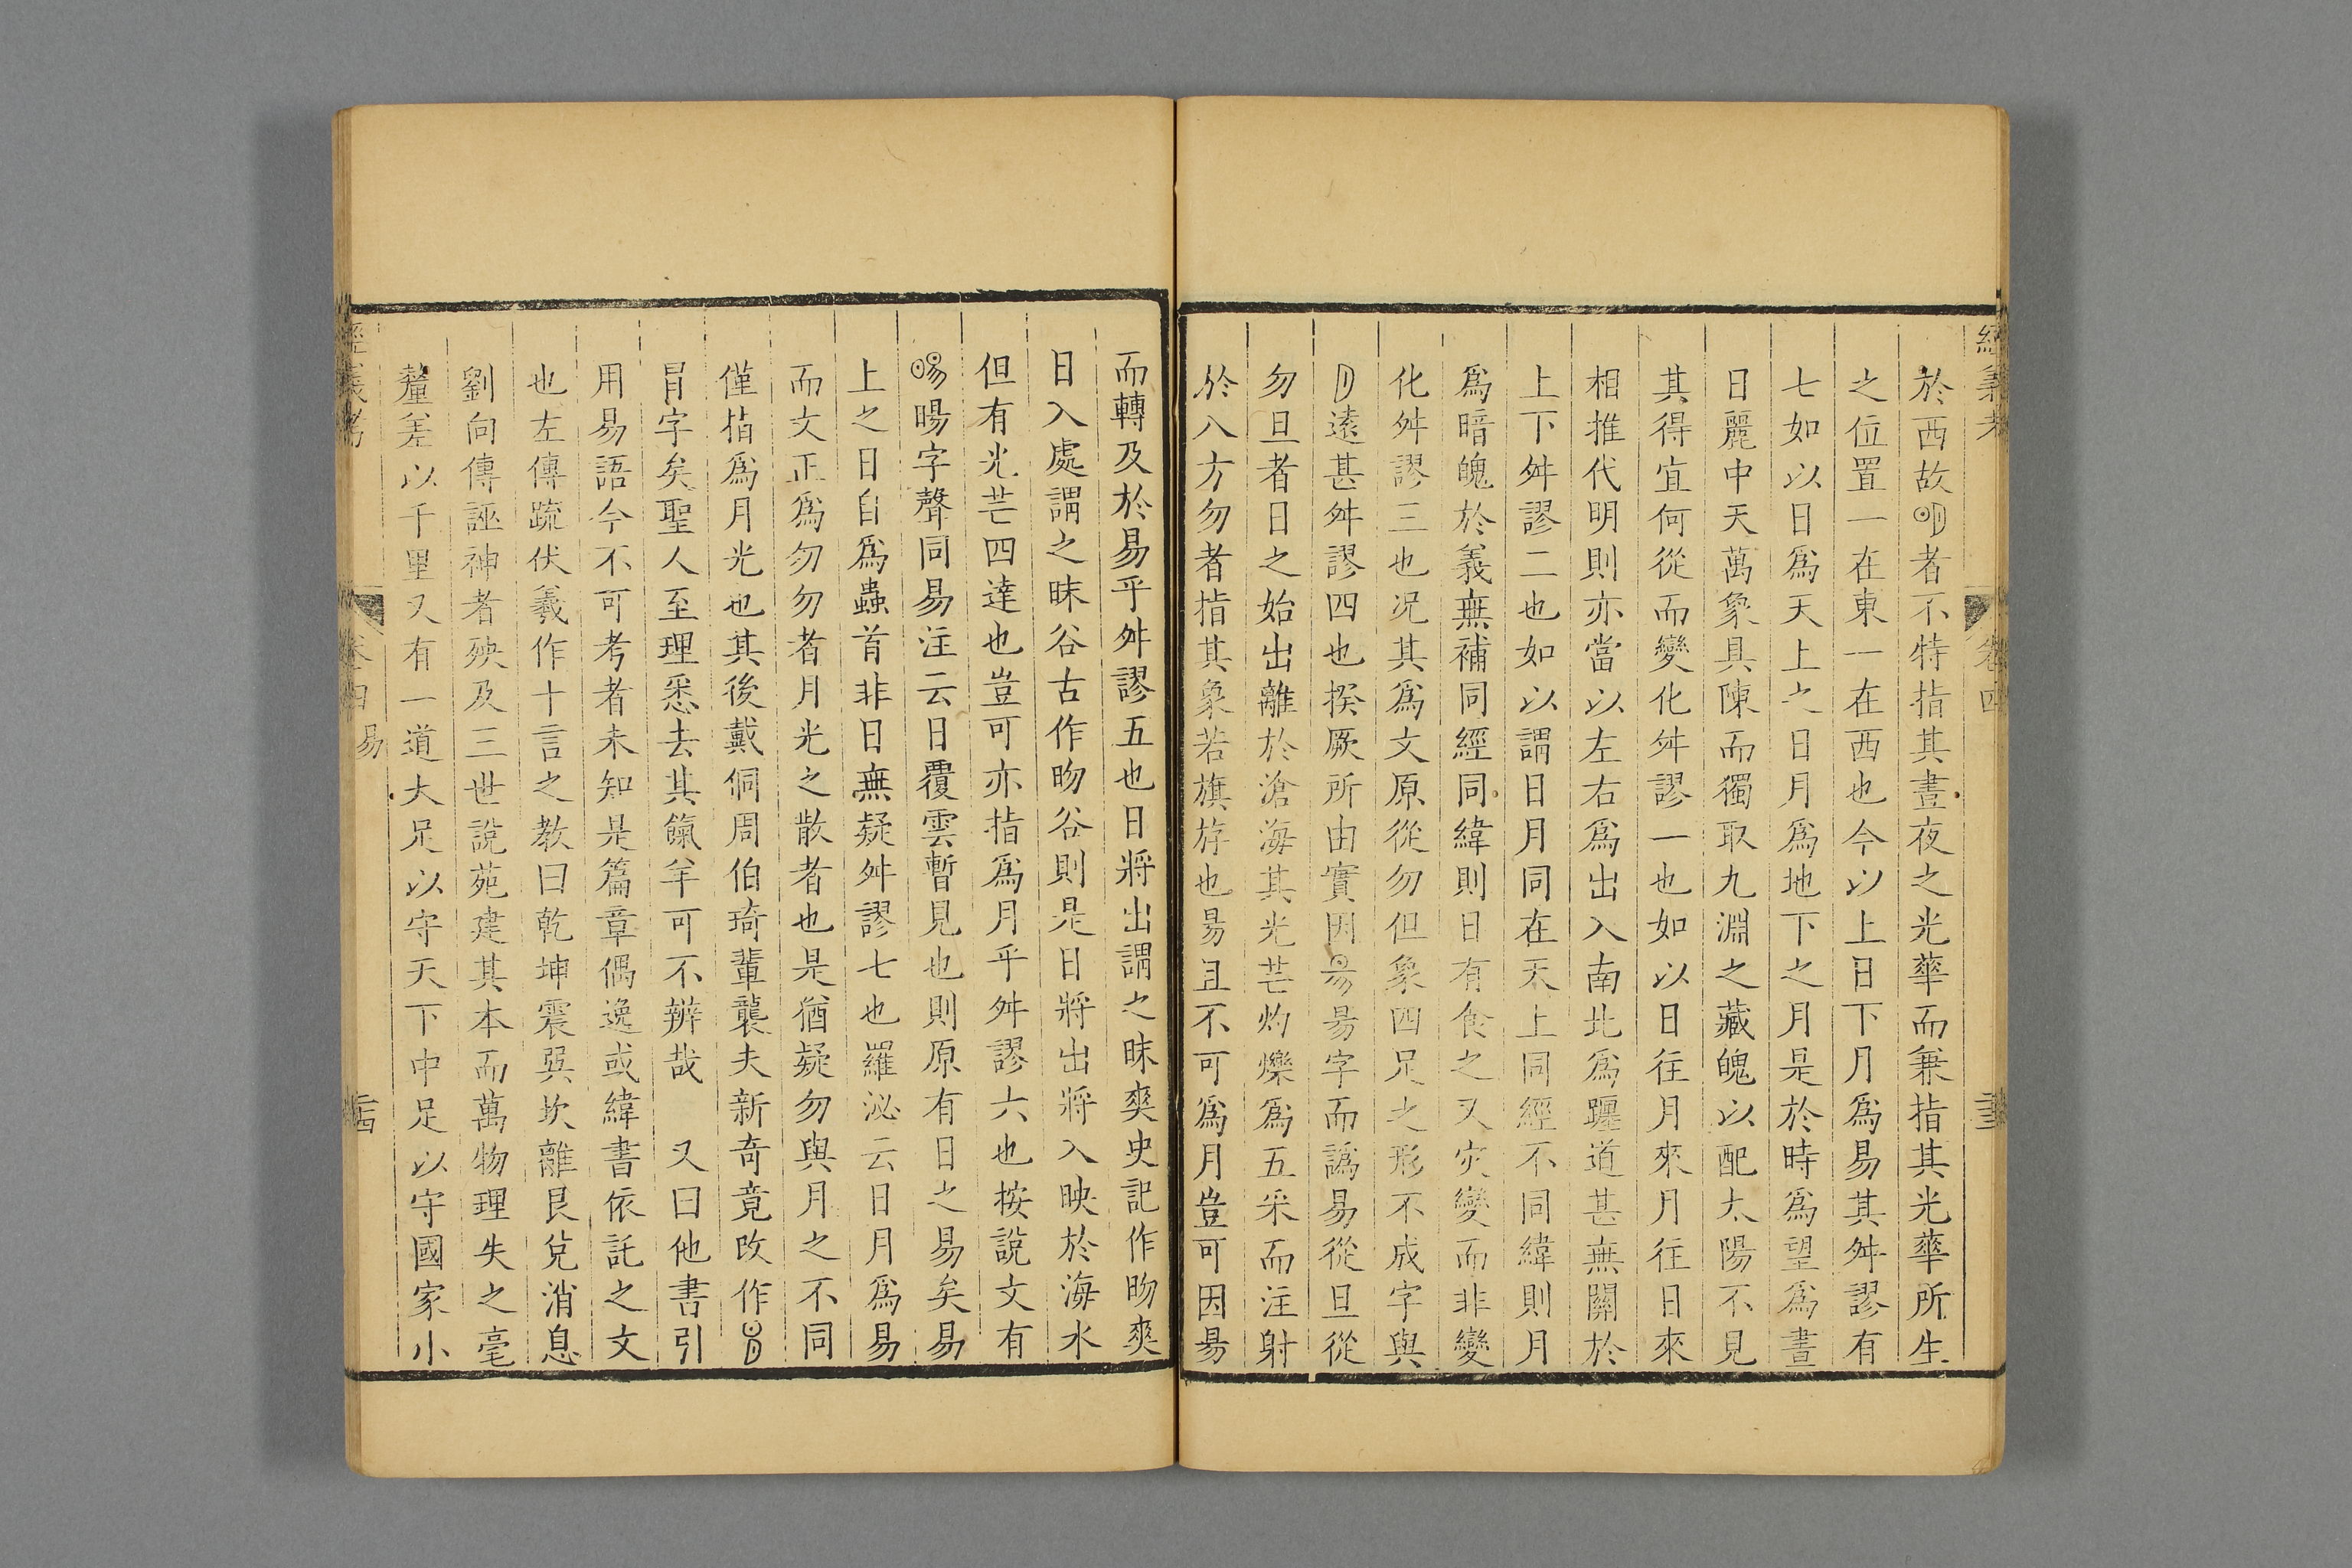 經義考
卷四
於西故明者不特指其晝夜之光華而兼指其光華所生
之位置一在東一在西也今以上日下月為易其舛謬有
七如以日為天上之日月為地下之月是於時為望為晝
日麗中天萬象具陳而獨取九淵之藏魄以配太陽不見
其得宜何從而變化舛謬一也如以日往月來月往日來
相推代明則亦當以左右為出入南北為躔道甚無關於
上下舛謬二也如以謂日月同在天上同經不同緯則月
為暗魄於義無補同經同緯則日有食之又灾變而非變
化舛謬三也况其為文原從勿但象四足之形不成字與
遠甚舛謬四也揆厥所由實因昜昜字而譌易從旦從
勿旦者日之始出離於滄海其光芒灼爍為五采而注射
於八方勿者指其象若旗斿也昜且不可為月豈可因昜
而轉及於易乎舛謬五也日將出謂之昧爽史記作昒爽
日入處謂之昧谷古作昒谷則是日將出將入映於海水
但有光芒四達也豈可亦指為月乎舛謬六也按說文有
暘字聲同易注云日覆雲暫見也則原有日之易矣易
上之日自為蟲首非日無疑舛謬七也羅泌云日月為易
而文正為勿勿者月光之散者也是猶疑勿與月之不同
僅指為月光也其後戴侗周伯琦輩襲夫新奇竟改作
冐字矣聖人至理悉去其餼羊可不辨哉　又曰他書引
用易語今不可考者未知是篇章偶逸或緯書依託之文
也左傳疏伏羲作十言之教曰乾坤震巽坎離艮兌消息
劉向傳誣神者殃及三世說苑建其本而萬物理失之毫
釐差以千里又有一道大足以守天下中足以守國家小
經義考
卷四
易